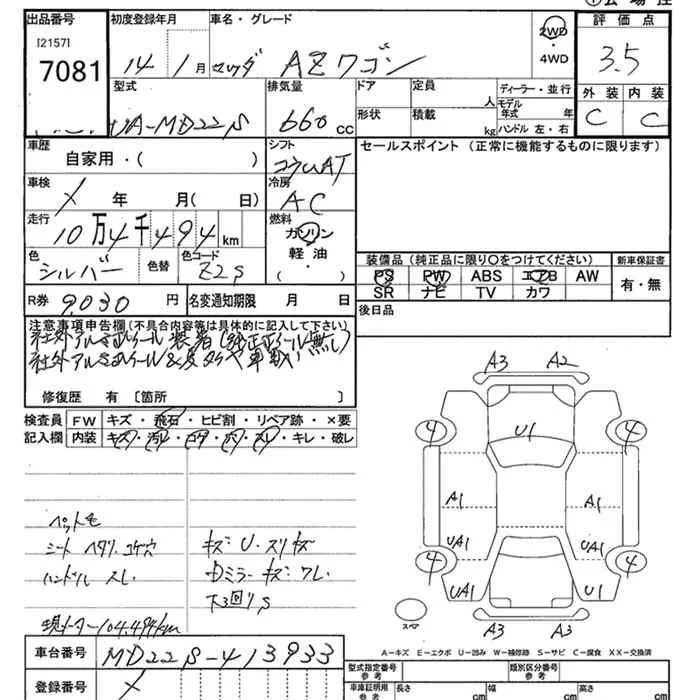 ① 会 場 控
出品番号
[2157]
7081
初度登録年月
14 1 月
車名・グレード
マツダ AZワゴン
2WD
・
4WD
評 価 点
3.5
外 装 内 装
C C
型式
UA-MD22S
排気量
660 cc
ドア
定員
人
形状
積載
kg
ディーラー・並行
モデル
年式 年
ハンドル 左・右
車歴
自家用・( )
シフト
コラムAT
セールスポイント (正常に機能するものに限ります)
車検
X 年 月( 日)
冷房
AC
走行
10万4千494 km
燃料
ガソリン
・
軽 油
( )
色
シルバー
色替
色コード
Z2S
装備品 (純正品に限り○をつけてください)
新車保証書
PS PW ABS エアB AW
SR ナビ TV カワ
有・無
R券 9,030 円
名変通知期限 月 日
後日品
注意事項申告欄(不具合内容等は具体的に記入して下さい)
社外アルミホイール装着(純正ホイール無し)
社外アルミホイール&
修復歴 有 〔箇所 〕
検査員
記入欄
FW キズ・飛石・ヒビ割・リペア跡・×要
内装 キズ・汚レ・コゲ・穴・スレ・キレ・破レ
ペット毛
シート ヘタリ、コゲ穴
ハンドル スレ
現メーター104,494km
キズ・U・スリキズ
ミラーキズ・ワレ
下回りS
A3 A2
4 4
U1
A1 A1
UA1 UA1
4 4
UA1 U1
A3 A3
スペア
A−キズ E−エクボ U−凹み W−補修跡 S−サビ C−腐食 XX−交換済
車台番号 MD22S-413933
登録番号 X
型式指定番号
参 考
類別区分番号
参 考
車庫証明用
参考
長さ cm
幅 cm
高さ cm